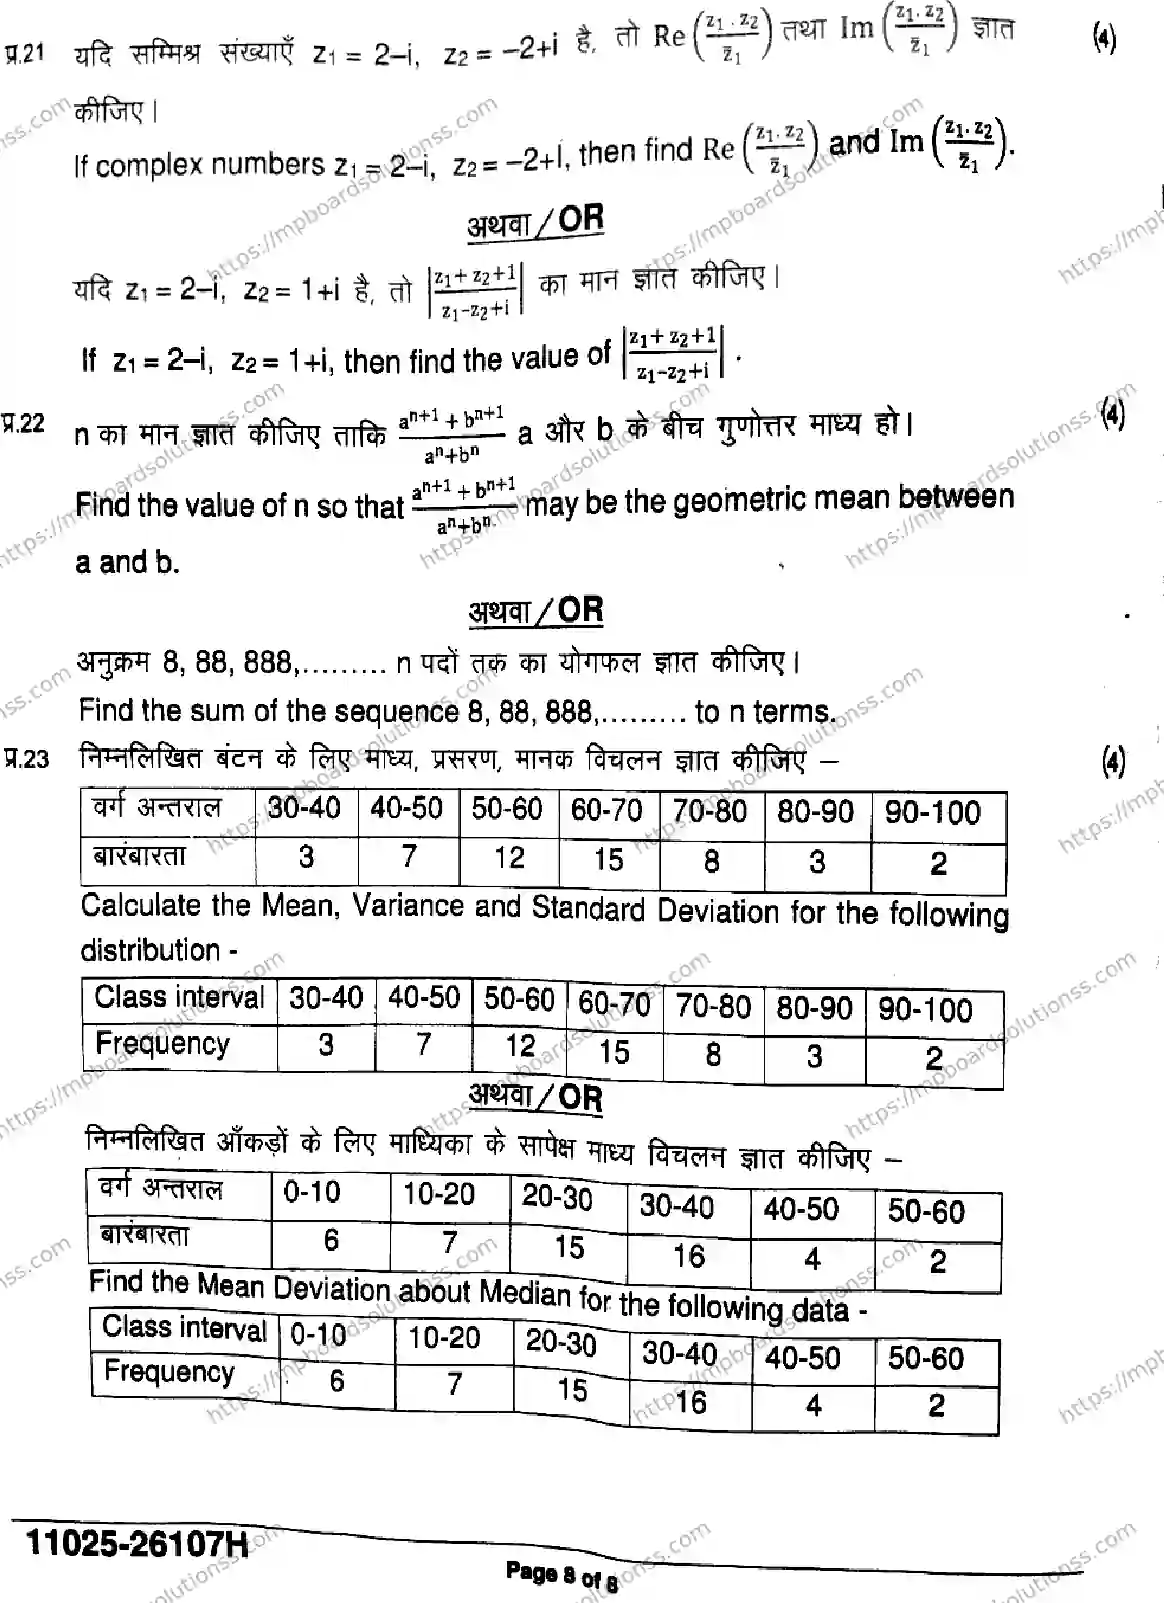 प्र.21 यदि सम्मिश्र संख्याएँ z₁ = 2–i, z₂ = –2+i है, तो Re (z₁ . z₂ / z̄₁) तथा Im (z₁. z₂ / z̄₁) ज्ञात (4)
कीजिए।
If complex numbers z₁ = 2–i, z₂ = –2+i, then find Re (z₁. z₂ / z̄₁) and Im (z₁. z₂ / z̄₁).
अथवा / OR
यदि z₁ = 2–i, z₂ = 1+i है, तो |z₁+ z₂+1 / z₁-z₂+i| का मान ज्ञात कीजिए।
If z₁ = 2–i, z₂ = 1+i, then find the value of |z₁+ z₂+1 / z₁-z₂+i| .
प्र.22 n का मान ज्ञात कीजिए ताकि aⁿ⁺¹ + bⁿ⁺¹ / aⁿ+bⁿ a और b के बीच गुणोत्तर माध्य हो। (4)
Find the value of n so that aⁿ⁺¹ + bⁿ⁺¹ / aⁿ+bⁿ may be the geometric mean between
a and b.
अथवा / OR
अनुक्रम 8, 88, 888,......... n पदों तक का योगफल ज्ञात कीजिए।
Find the sum of the sequence 8, 88, 888,......... to n terms.
प्र.23 निम्नलिखित बंटन के लिए माध्य, प्रसरण, मानक विचलन ज्ञात कीजिए – (4)
वर्ग अन्तराल 30-40 40-50 50-60 60-70 70-80 80-90 90-100
बारंबारता 3 7 12 15 8 3 2
Calculate the Mean, Variance and Standard Deviation for the following
distribution -
Class interval 30-40 40-50 50-60 60-70 70-80 80-90 90-100
Frequency 3 7 12 15 8 3 2
अथवा / OR
निम्नलिखित आँकड़ों के लिए माध्यिका के सापेक्ष माध्य विचलन ज्ञात कीजिए –
वर्ग अन्तराल 0-10 10-20 20-30 30-40 40-50 50-60
बारंबारता 6 7 15 16 4 2
Find the Mean Deviation about Median for the following data -
Class interval 0-10 10-20 20-30 30-40 40-50 50-60
Frequency 6 7 15 16 4 2
11025-26107H
Page 8 of 8
https://mpboardsolutionss.com